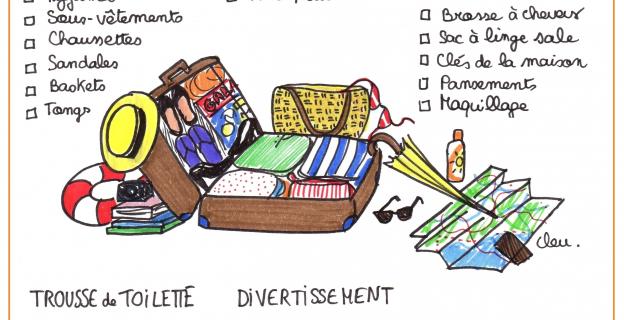 Sous-vêtements
Chaussettes
Sandales
Baskets
Tongs
Brosse à cheveux
Sac à linge sale
Clés de la maison
Pansements
Maquillage
cleu.
TROUSSE de TOiLETTE
DiVERTiSSEMENT